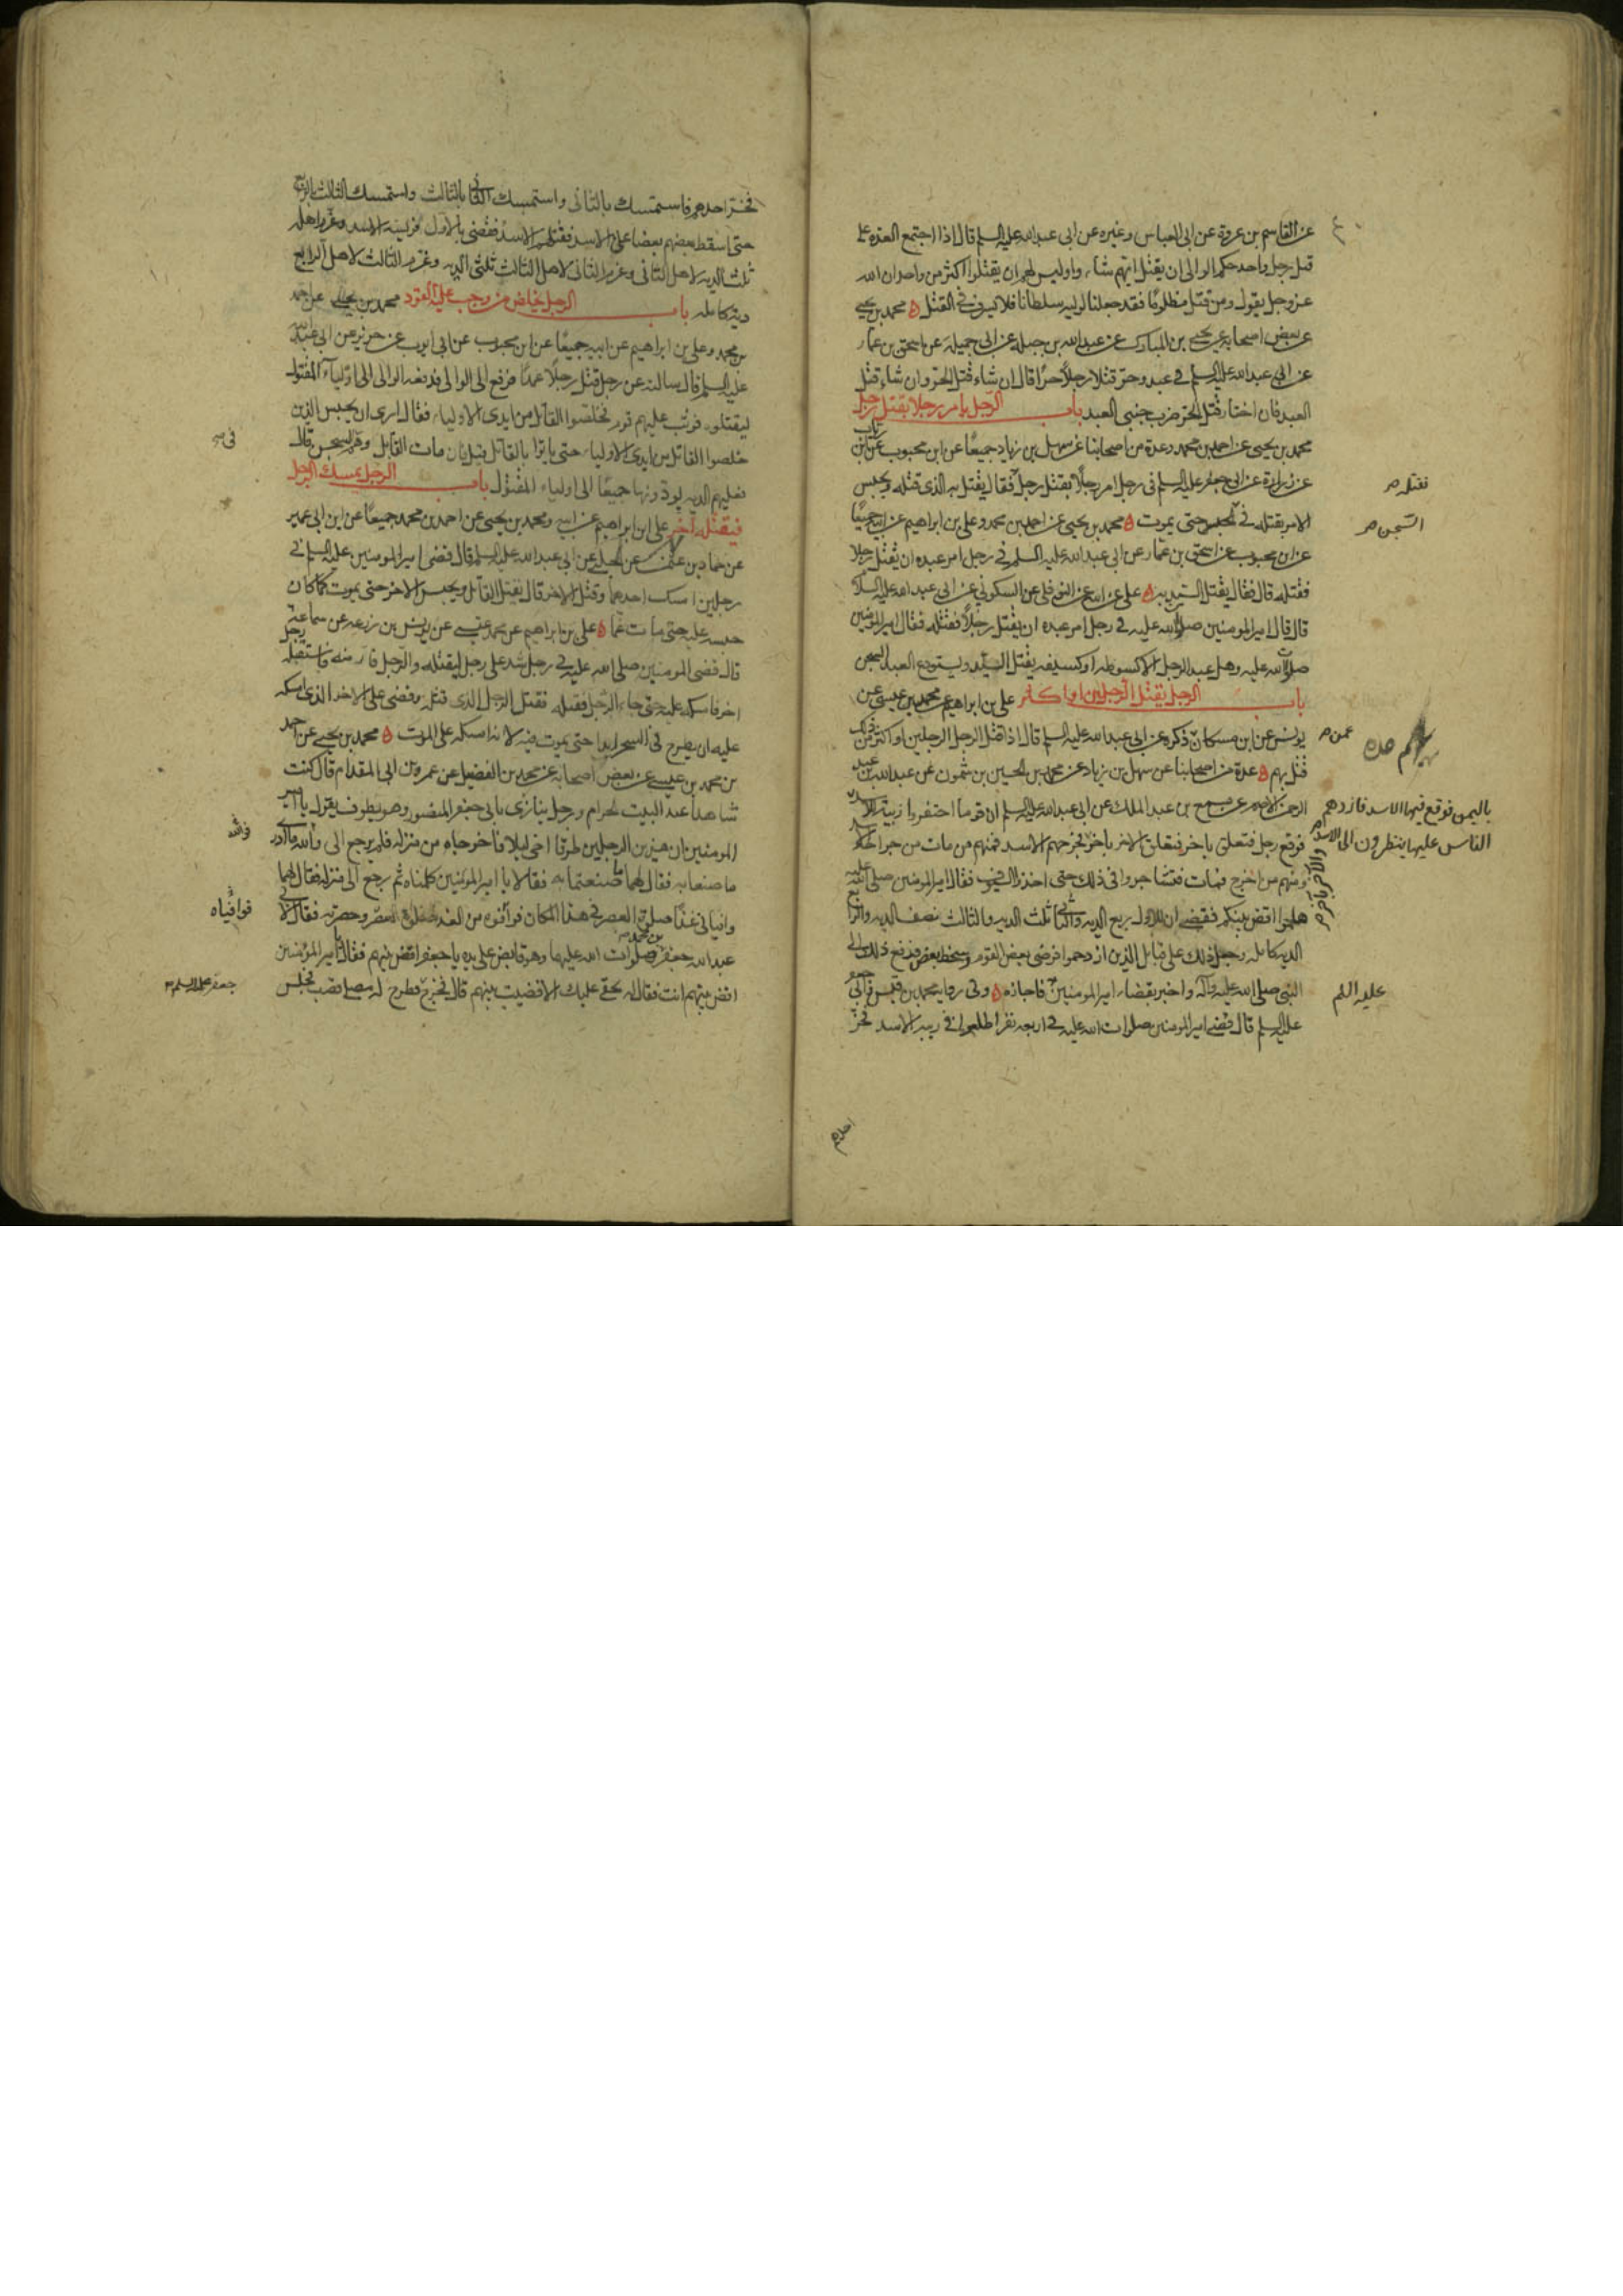 عن القاسم بن عروة عن ابى العباس وغيره عن ابى عبد الله عليه السلم قال اذا اجتمع العدة على
قتل رجل واحد حكم الوالى ان يقتل ايهم شاء واوليس لهم ان يقتلوا اكثر من واحد ان الله
عز وجل يقول ومن قتل مظلومًا فقد جعلنا لوليه سلطانا فلا يسرف فى القتل ه محمد بن يحيى
عن بعض اصحابه عن يحيى بن المبارك عن عبد الله بن جبلة عن ابى جميله عن اسحق بن عمار
عن ابى عبد الله عليه السلم فى عبد وحرّ قتلا رجلاً حرّا قال ان شاء قتل الحرّ وان شاء قتل
العبد فان اختار قتل الحرّ ضرب جنبى العبد باب الرّجل يامر رجلا بقتل رجل
محمد بن يحيى عن احمد بن محمد وعدة من اصحابنا عن سهل بن زياد جميعًا عن ابن محبوب عن ابن رئاب
عن زرارة عن ابى جعفر عليه السلم فى رجل امر رجلاً بقتل رجل فقال يقتل به الذى قتله ويحبس
فقتله
الامر بقتله فى الحبس حتى يموت ه محمد بن يحيى عن احمد بن محمد وعلى بن ابراهيم عن ابيه جميعًا
السّجن
عن ابن محبوب عن اسحق بن عمار عن ابى عبد الله عليه السلم فى رجل امر عبده ان يقتل رجلا
فقتله قال فقال يقتل السّيد به ه على عن ابيه عن النوفلى عن السكونى عن ابى عبد الله عليه السلم
قال قال امير المومنين صلوات الله عليه فى رجل امر عبده ان يقتل رجلاً فقتله فقال امير المومنين
صلوات الله عليه وهل عبد الرجل الا كسوطه او كسيفه يقتل السيّد ويستودع العبد السجن
باب الرجل يقتل الرّجلين او اكثر على بن ابراهيم عن محمد بن عيسى عن
يونس عن ابن مسكان ذكره عن ابى عبد الله عليه السلم قال اذا قتل الرجل الرجلين او اكثر من ذلك
عمن
قتل بهم ه عدة من اصحابنا عن سهل بن زياد عن محمد بن الحسين بن شمون عن عبد الله بن عبد
الرحمن الاصم عن مسمع بن عبد الملك عن ابى عبد الله عليه السلم ان قوما احتفروا زبية للاسد
باليمن فوقع فيها الاسد فازدهم
الناس عليها ينظرون الى الاسد
فوقع رجل فتعلق باخر فتعلق الاخر باخر فجرحهم الاسد فمنهم من مات من جراحة الاسد
والاخر باخر
ومنهم من اخرج فمات فتشاجروا فى ذلك حتى اخذوا السيوف فقال امير المومنين صلى الله عليه
هلموا اقض بينكم فقضى ان للاول ربع الدية والثانى ثلث الدية والثالث نصف الدية والرابع
الدية كامله وجعل ذلك على قبائل الذين ازدحموا فرضى بعض القوم وسخط بعض فرفع ذلك الى
النبى صلى الله عليه وآله واخبر بقضاء امير المومنين فاجازه ه وفى رواية محمد بن قيس عن ابى جعفر
عليه السلم
عليه السلم قال قضى امير المومنين صلوات الله عليه فى اربعة نفر اطلعوا فى زبية الاسد فخرّ
احدهم
فخرّ احدهم فاستمسك بالثانى واستمسك الثانى بالثالث واستمسك الثالث بالرابع
حتى اسقط بعضهم بعضا على الاسد فقتلهم الاسد فقضى بالاول فريسة الاسد وغرّم اهله
ثلث الدية لاهل الثانى وغرم الثانى لاهل الثالث ثلثى الدية وغرم الثالث لاهل الرابع
دية كامله باب الرجل يخلص من وجب عليه القود محمد بن يحيى عن احمد
بن محمد وعلى بن ابراهيم عن ابيه جميعًا عن ابن محبوب عن ابى ايوب عن حريز عن ابى عبد الله
عليه السلم قال سالته عن رجل قتل رجلاً عمدًا فرفع الى الوالى فدفعه الوالى الى اولياء المقتول
ليقتلوه فوثب عليهم قوم فخلصوا القاتل من ايدى الاولياء فقال ارى ان يحبس الذين
خلصوا القاتل من ايدى الاولياء حتى ياتوا بالقاتل قيل فان مات القاتل وهم السجن قال
فى
فعليهم الدية يودّونها جميعًا الى اولياء المقتول باب الرّجل يمسك الرجل
فيقتله آخر على ابن ابراهيم عن ابيه ومحمد بن يحيى عن احمد بن محمد جميعًا عن ابن ابى عمير
عن حماد بن عثمن عن الحلبى عن ابى عبد الله عليه السلم قال قضى امير المومنين عليه السلم فى
رجلين امسك احدهما وقتل الاخر قال يقتل القاتل ويحبس الاخر حتى يموت كما كان
حبسه عليه حتى مات غمًا ه على بن ابراهيم عن محمد عيسى عن يونس بن زرعه عن سماعة
قال قضى المومنين صلى الله عليه فى رجل شد على رجل ليقتله والرّجل فار منه فاستقبله رجل
اخر فامسكه عليه حتى جاء الرّجل فقتله فقتل الرّجل الذى قتله وقضى على الاخر الذى امسكه
عليه ان يطرح فى السجن ابدا حتى يموت فيه لانه امسكه على الموت ه محمد بن يحيى عن احمد
بن محمد بن عيسى عن بعض اصحابه عن محمد بن الفضيل عن عمرو بن ابى المقدام قال كنت
شاهدا عند البيت الحرام ورجل ينادى بابى جعفر المنصور وهو يطوف يقول يا امير
المومنين ان هذين الرجلين طرقا اخى ليلا فاخرجاه من منزله فلم يرجع الى والله ما ادرى
فوالله
ما صنعا به فقال لهما ما صنعتما به فقالا يا امير المومنين كلمناه ثم رجع الى منزله فقال لهما
وافيانى غدًا صلوة العصر فى هذا المكان فوافوه من الغد صلوة العصر وحضرته فقال لابى
فوافياه
عبد الله جعفر بن محمد صلوات الله عليهما وهو قابض على يده يا جعفر اقض بينهم فقال يا امير المؤمنين
اقض بينهم انت فقال له بحقى عليك الا قضيت بينهم قال فخرج فطرح له مصلى قصب فجلس
جعفر عليه السلم